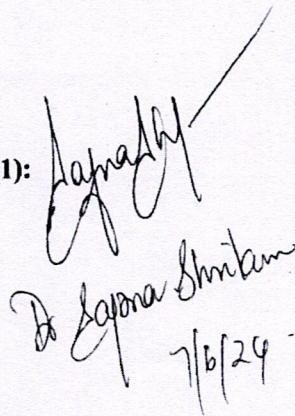 1):
Dr Sapna Shrikam
7/6/24